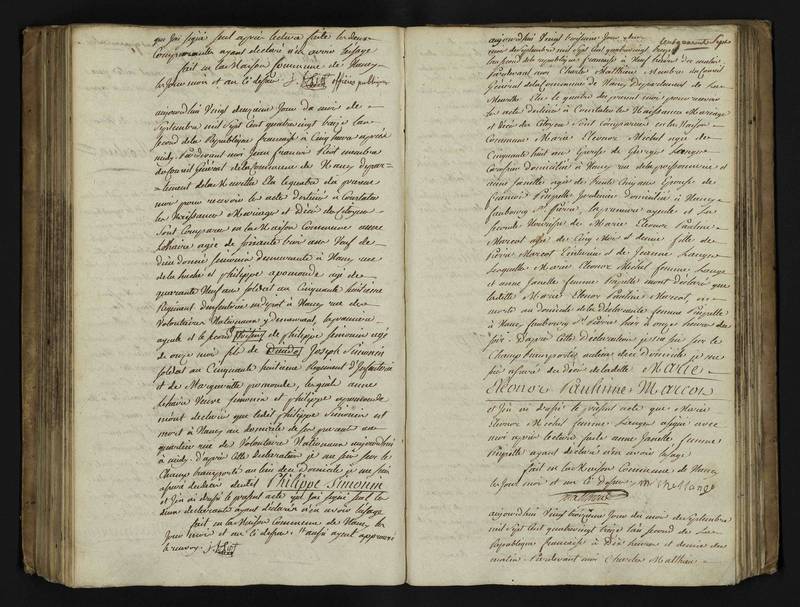 que j'ai signé seul après lecture faite les deux
Comparantes ayant déclaré n'en avoir l'usage
fait en la Maison Commune de Nancy
les jour mois et an ci dessus officier public
aujourd'hui vingt deuxieme jour du mois de
Septembre mil sept cent quatrevingt treize l'an
second de la République française à Cinq heures après
midy. Pardevant moi Jean françois membre
du Conseil Général de la Commune de Nancy Depar-
-tement de la Meurthe Elu le quatre du présent
mois pour recevoir les actes destinés à Constater
les Naissances Mariages et Décès des Citoyens
Sont Comparus en la Maison Commune anne
Lohaire agée de soixante trois ans Veuve de
dieudonné Simonin demeurante à Nancy rue
de la hache et philippe apomonde agé de
quarante neuf ans soldat au Cinquante huitieme
Régiment d'infanterie en dépot à Nancy rue des
Volontaires Nationaux y demeurant, la premiere
ayeule et le second de philippe Simonin agé
de onze mois fils de Joseph Simonin
soldat au Cinquante huitieme Régiment d'Infanterie
et de Marguerite pomonde, lesquels anne
Lohaire Veuve Simonin et philippe apomonde
m'ont déclaré que ledit philippe Simonin est
mort à Nancy au domicile de ses parents au
quartier rue des Volontaires Nationaux aujourd'hui
à midy. d'après cette déclaration je me suis sur le
Champ transporté au lieu du Domicile je me suis
assuré du décès dudit Philippe Simonin
et j'en ai dressé le présent acte que j'ai signé seul les
deux déclarants ayant déclaré n'en avoir l'usage
fait en la Maison Commune de Nancy les
Jour mois et an ci dessus. ayant approuvé
le renvoy.
aujourd'hui Vingt troisieme Jour du
mois de Septembre mil sept Cent quatrevingt treize
l'an second de la république française à neuf heures du matin
Pardevant moi Charles Matthieu Membre du Conseil
Général de la Commune de Nancy Departement de la
Meurthe Elu le quatre du présent mois pour recevoir
les actes destinés à Constater les Naissances Mariages
et Décès des Citoyens Sont Comparues en la Maison
Commune Marie Eleonor Michel agée de
Cinquante huit ans Epouse de George Lange
domicilié à Nancy rue de la poissonnerie et
anne Janelle agée de trente Cinq ans Epouse de
François Poupelle Jardinier domicilié à Nancy
faubourg St. Pierre, la premiere ayeule et la
seconde Nourrice de Marie Eleonor Pauline
Marcot agée de Cinq Mois et demie fille de
Pierre Marcot et de Jeanne Lange
Lesquelles Marie Eleonor Michel femme Lange
et anne Janelle femme Poupelle m'ont déclaré que
ladite Marie Eleonor Pauline Marcot, est
morte au domicile de la déclarante femme Poupelle
à Nancy faubourg St. Pierre hier à onze heures du
soir. D'après Cette Déclaration je me suis sur le
Champ transporté au lieu du domicile je me
suis assuré du décès de ladite Marie
Eleonor Paulinne Marcot
et j'en ai dressé le présent acte que Marie
Eleonor Michel femme Lange a signé avec
moi après lecture faite anne Janelle femme
Poupelle ayant déclaré n'en avoir l'usage
fait en la Maison Commune de Nancy
les jour mois et an ci dessus. Michel Lange
Matthieu
aujourd'hui Vingt troisieme Jour du mois de Septembre
mil sept Cent quatrevingt treize l'an second de la
République française à Dix heures et demie du
matin. Pardevant moi Charles Matthieu